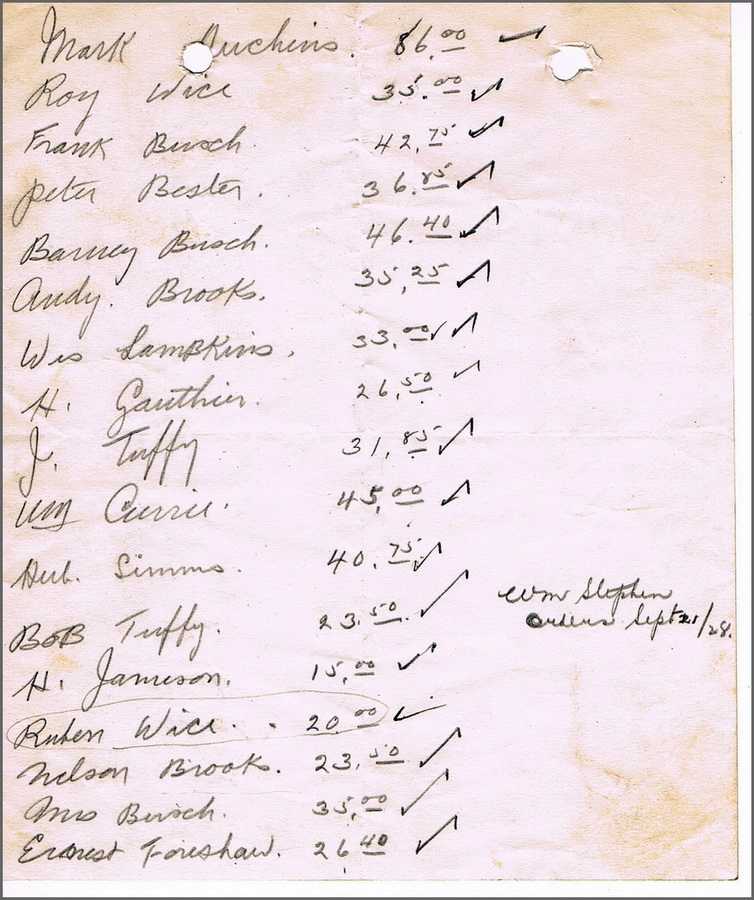 Mark Huchins. 86.00
Roy Wice 35.00
Frank Busch. 42.75
Peter Bester. 36.85
Barney Busch. 46.40
Andy. Brooks. 35.25
Wes Lampkins. 33.00
H. Gauthier. 26.50
J. Tuffy 31.85
Wm Currie. 45.00
Herb. Simms. 40.75
Bob Tuffy. 23.50
Wm Stephen
orders Sept 21/28.
H. Jameson. 15.00
Ruben Wice. 20.00
Nelson Brooks. 23.50
Mrs Busch. 35.00
Ernest Foreshaw. 26.40